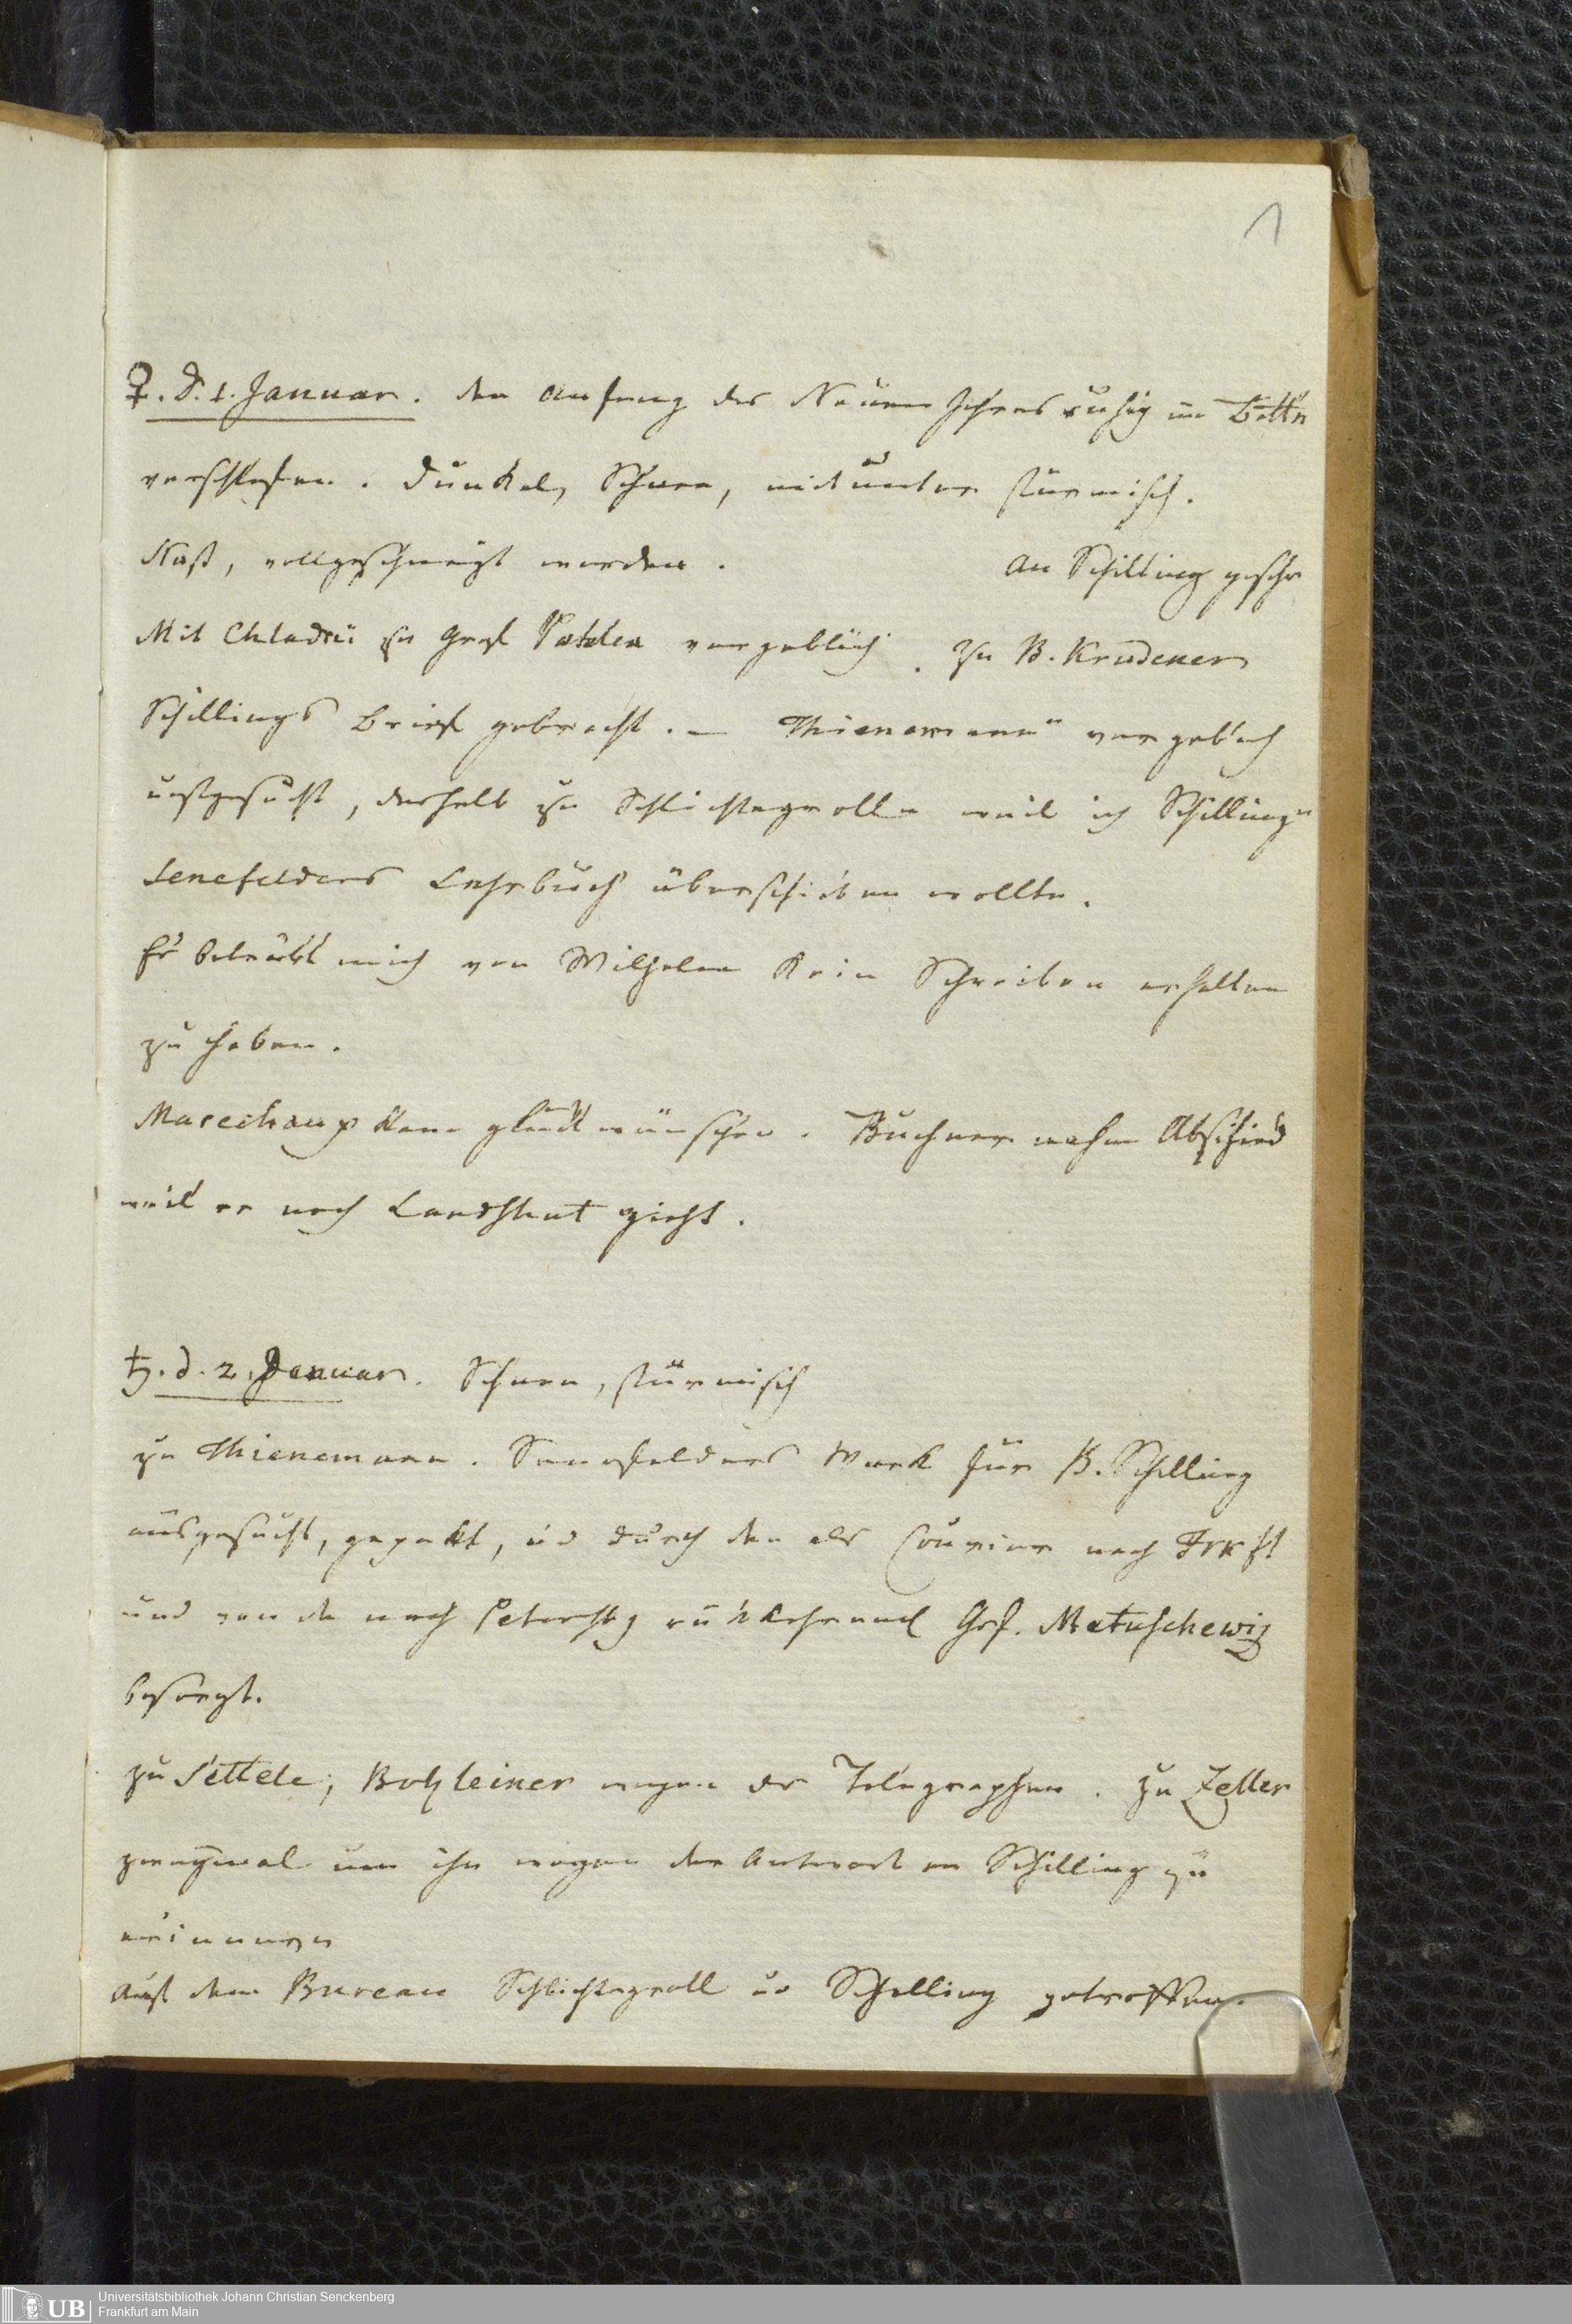 1
♀. d. 1. Januar. den Anfang des Neuen Jahres ruhig im Bette
verschlafen. Dunkel, Schnee, mitunter stürmisch.
Naß, geschneigt worden. An Schilling geschr
Mit Chladni zu Graf Pahlen vergeblich. Zu B. Krüdener
Schillings Brief gebracht. – Thienemann vergeblich
aufgesucht, deshalb zu Schlichtegrolls weil ich Schilling
Senefelders Lehrbuch überschicken wollte.
Es betrübt mich von Wilhelm kein Schreiben erhalten
zu haben.
Marechaux kam glückwünschen. Buchner nahm Abschied
weil er nach Landshut zieht.
♄. d. 2. Januar. Schnee, stürmisch
zu Thienemann. Senefelders Werk für B. Schilling
ausgesucht, gepakt, ud durch den als Courier nach Frkft
und von da nach Petersbg rükkehrend Grf. Matuschewiz
besorgt.
zu Settele, Bohleiner wegen der Telegraphen. zu Zeller
zweymal um ihn wegen der Antwort an Schilling zu
erinnern
Auf dem Bureau Schlichtegroll ud Schelling getroffen.
Universitätsbibliothek Johann Christian Senckenberg
Frankfurt am Main
UB